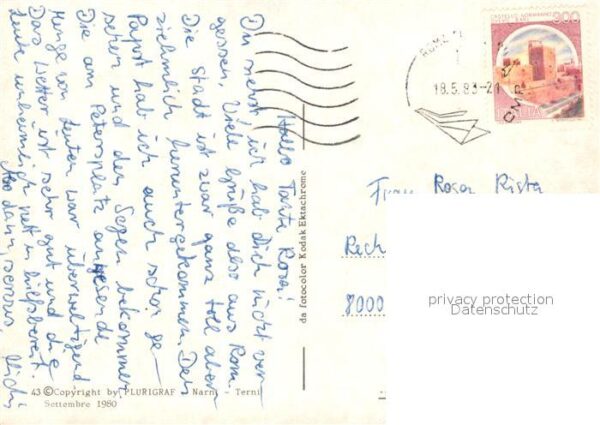 Hallo Tante Rosa!
Du siehst ich hab Dich nicht ver
gessen. Viele Grüße also aus Rom.
Die Stadt ist zwar ganz toll aber
ziehmlich heruntergekommen. Den
Papst hab ich auch schon ge-
sehen und den Segen bekommen
Die am Petersplatz
Menge von Leuten war überwältigend
Das Wetter ist sehr gut und die
Leute unheimlich nett u. hilfsbereit.
Also dann, servus,
da fotocolor Kodak Ektachrome
43 © Copyright by PLURIGRAF - Narni - Terni
Settembre 1980
ROMA
18.5.83-21
900
Frau Rosa Rista
Rech
8000
privacy protection
Datenschutz